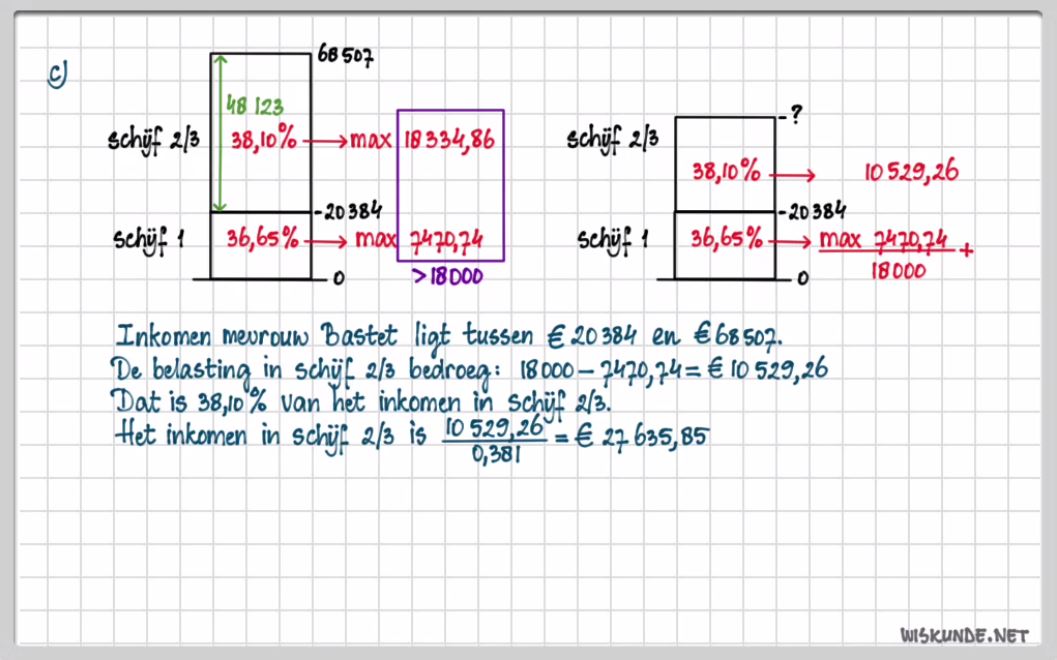 c)
68 507
48 123
schijf 2/3
38,10% → max 18 334,86
-20 384
schijf 1
36,65% → max 7470,74
0
>18000
-?
schijf 2/3
38,10% → 10 529,26
-20 384
schijf 1
36,65% → max 7470,74 +
0
18000
Inkomen mevrouw Bastet ligt tussen € 20 384 en € 68 507.
De belasting in schijf 2/3 bedroeg: 18 000 - 7470,74 = € 10 529,26
Dat is 38,10% van het inkomen in schijf 2/3.
Het inkomen in schijf 2/3 is 10 529,26 / 0,381 = € 27 635,85
WISKUNDE.NET